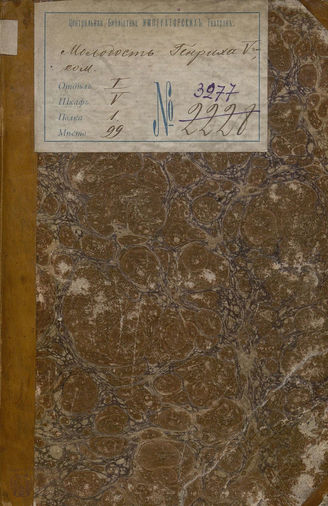 Центральная Библіотека ИМПЕРАТОРСКИХЪ Театровъ.
Молодость Генриха V
ком.
Отдѣлъ I
Шкафъ V
Полка 1.
Мѣсто 99
№
3977
2228